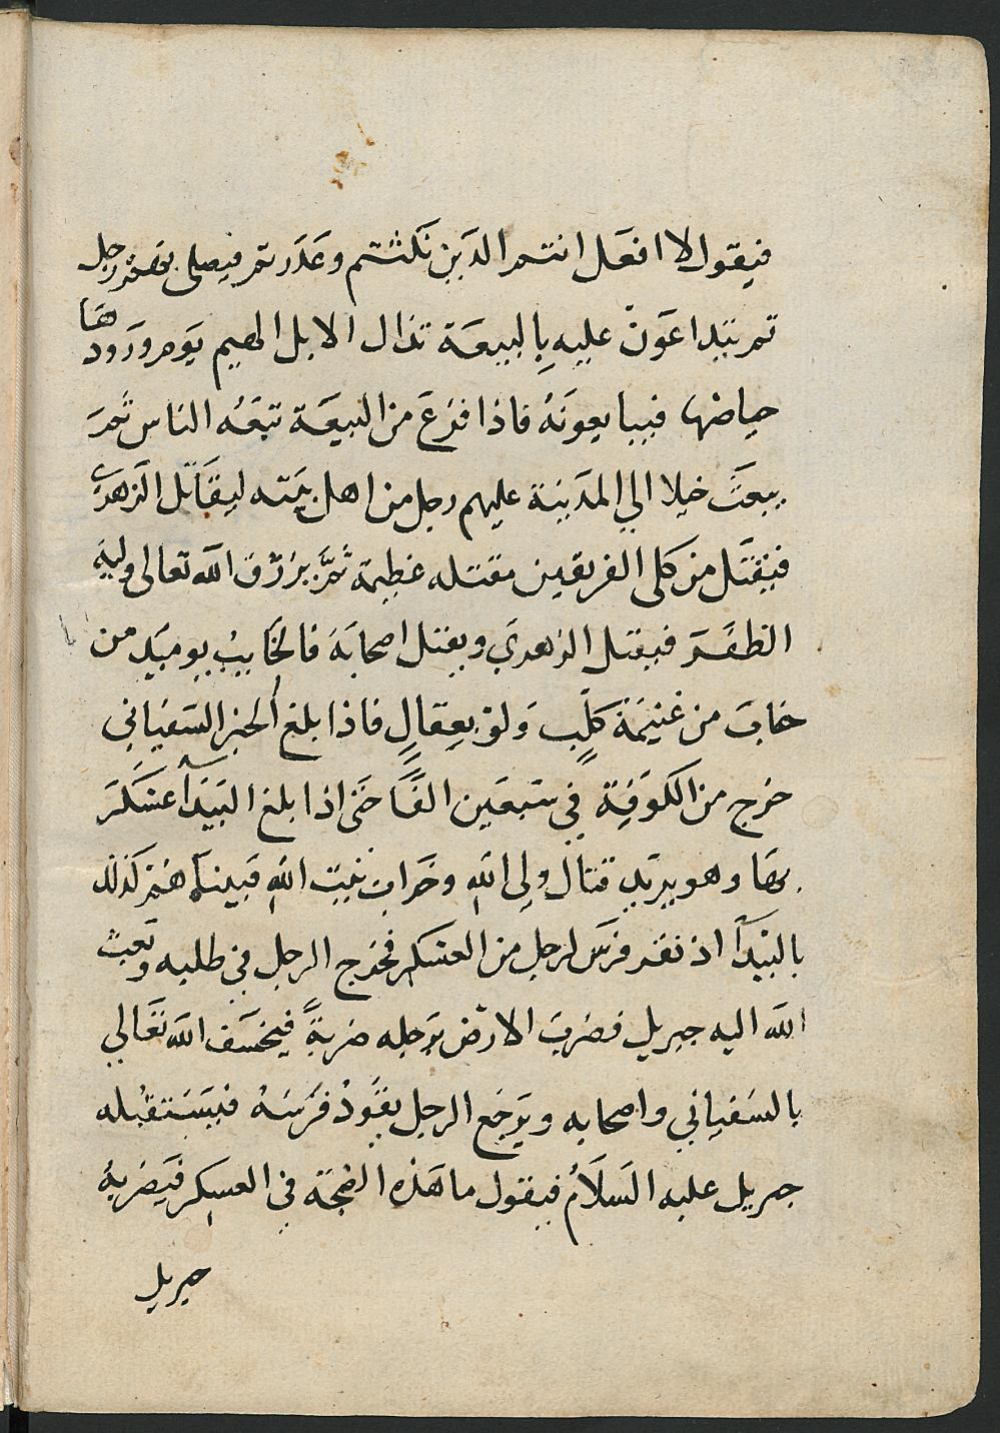 فيقول لا افعل انتم الدين نكثتم وغدرتم فيصلى بهم رجل
تم يتداعون عليه بالبيعة تدال الابل الهيم يوم ورودها
حياضها فيبايعونه فاذا فرغ من البيعة تبعه الناس ثم
يبعث خيلا الي المدينة عليهم رجل من اهل بيته ليقاتل الزهري
فيقتل من كلى الفريقين مقتله عظيمة ثم يرزق الله تعالى وليه
الظفر فيقتل الزهري ويقتل اصحابه فالخايب يوميد من
خاب من غنيمة كلب ولو بعقال فاذا بلغ الخبر السفياني
خرج من الكوفة في سبعين الفا حتى اذا بلغ البيدآ عسكر
بها وهو يريد قتال ولى الله وخراب بيت الله فبينما هم كذلك
بالبيدآ اذ نفر فرس لرجل من العسكر فخرج الرجل في طلبه وبعث
الله اليه جبريل فضرب الارض برجله ضربة فيخسف الله تعالي
بالسفياني واصحابه ويرجع الرجل يقود فرسه فيستقبله
جبريل عليه السلام فيقول ما هذه الضجة في العسكر فيضربه
جبريل